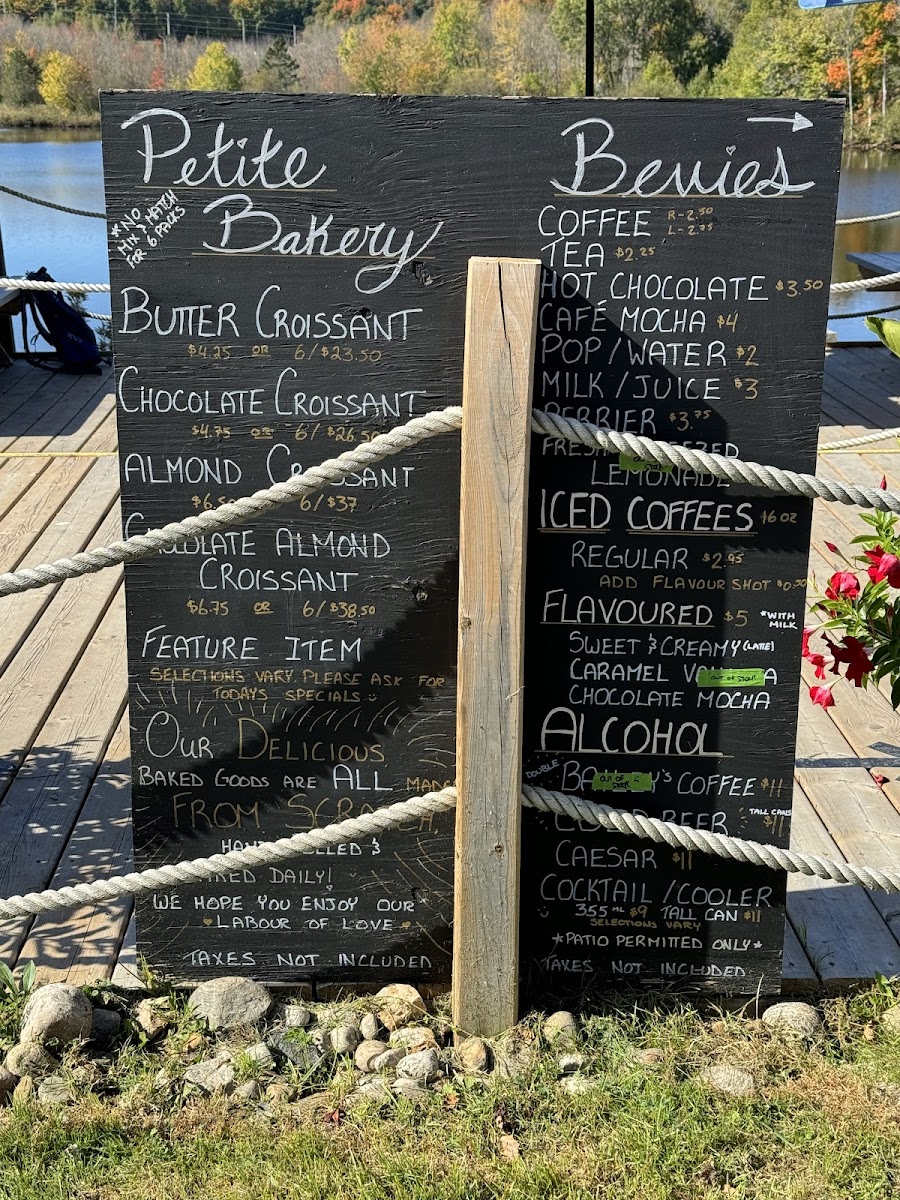 Petite
Bakery
*NO
MIX & MATCH
FOR 6 PACKS
BUTTER CROISSANT
$4.25 OR 6/$23.50
CHOCOLATE CROISSANT
$4.75 OR 6/$26.50
ALMOND CROISSANT
$6.50 6/$37
CHOCOLATE ALMOND
CROISSANT
$6.75 OR 6/$38.50
FEATURE ITEM
SELECTIONS VARY. PLEASE ASK FOR
TODAYS SPECIALS
OUR DELICIOUS
BAKED GOODS ARE ALL MADE
FROM SCRATCH,
HAND ROLLED &
BAKED DAILY!
WE HOPE YOU ENJOY OUR
LABOUR OF LOVE
TAXES NOT INCLUDED
Bevies
COFFEE R-2.50
L-2.75
TEA $2.25
HOT CHOCOLATE $3.50
CAFÉ MOCHA $4
POP/WATER $2
MILK/JUICE $3
PERRIER $3.75
FRESH SQUEEZED
LEMONADE
ICED COFFEES 16 OZ
REGULAR $2.95
ADD FLAVOUR SHOT $0.50
FLAVOURED $5 *WITH
MILK
SWEET & CREAMY (LATTE)
CARAMEL VANILLA
OUT OF STOCK
CHOCOLATE MOCHA
ALCOHOL
DOUBLE BAILEY'S COFFEE $11
OUT OF STOCK
COLD BEER TALL CANS
$11
CAESAR $11
COCKTAIL/COOLER
355 ML $9 TALL CAN $11
SELECTIONS VARY
*PATIO PERMITED ONLY*
TAXES NOT INCLUDED